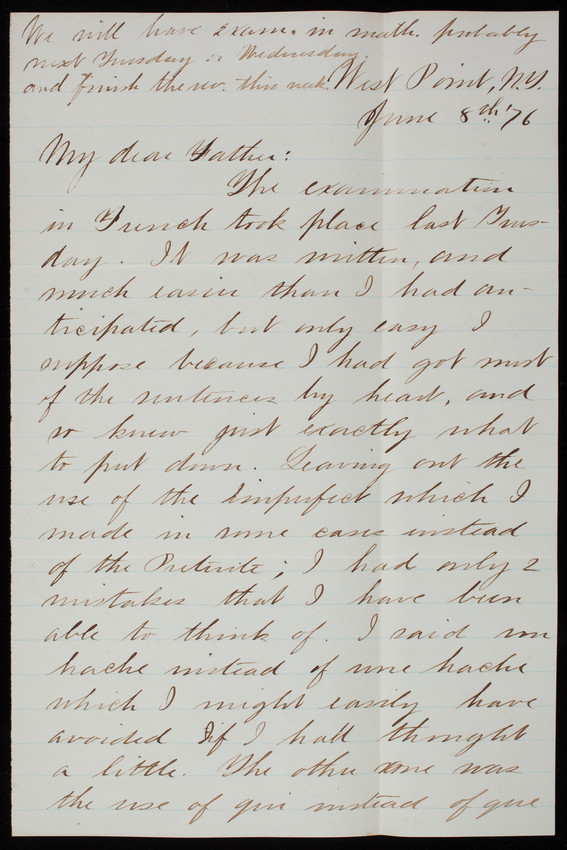 We will have exam. in math. probably
next Tuesday or Wednesday,
and finish the rev. this week.
West Point, N.Y.
June 8th '76
My dear Father:
The examination
in French took place last Tues-
day. It was written, and
much easier than I had an-
ticipated, but only easy I
suppose because I had got most
of the sentences by heart, and
so knew just exactly what
to put down. Leaving out the
use of the Imperfect which I
made in some cases instead
of the Preterite; I had only 2
mistakes that I have been
able to think of. I said un
hache instead of une hache
which I might easily have
avoided if I had thought
a little. The other one was
the use of qui instead of que